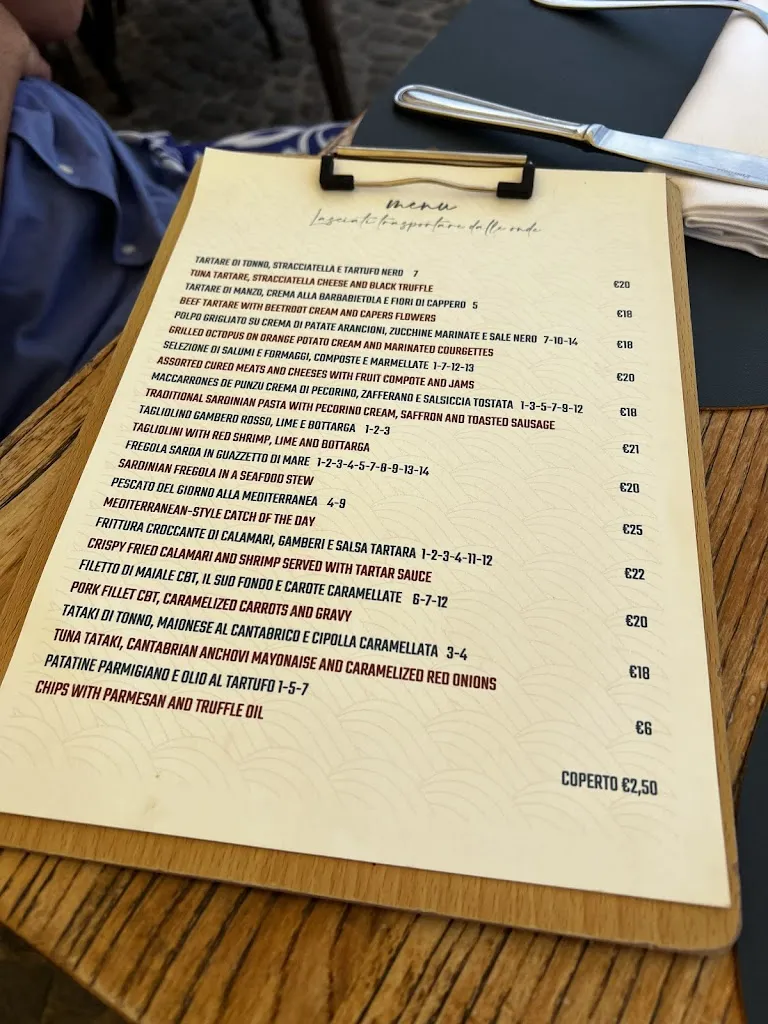 menu
Lasciati trasportare dalle onde
TARTARE DI TONNO, STRACCIATELLA E TARTUFO NERO 7
TUNA TARTARE, STRACCIATELLA CHEESE AND BLACK TRUFFLE €20
TARTARE DI MANZO, CREMA ALLA BARBABIETOLA E FIORI DI CAPPERO 5
BEEF TARTARE WITH BEETROOT CREAM AND CAPERS FLOWERS €18
POLPO GRIGLIATO SU CREMA DI PATATE ARANCIONI, ZUCCHINE MARINATE E SALE NERO 7-10-14
GRILLED OCTOPUS ON ORANGE POTATO CREAM AND MARINATED COURGETTES €18
SELEZIONE DI SALUMI E FORMAGGI, COMPOSTE E MARMELLATE 1-7-12-13
ASSORTED CURED MEATS AND CHEESES WITH FRUIT COMPOTE AND JAMS €20
MACCARRONES DE PUNZU CREMA DI PECORINO, ZAFFERANO E SALSICCIA TOSTATA 1-3-5-7-9-12
TRADITIONAL SARDINIAN PASTA WITH PECORINO CREAM, SAFFRON AND TOASTED SAUSAGE €18
TAGLIOLINO GAMBERO ROSSO, LIME E BOTTARGA 1-2-3
TAGLIOLINI WITH RED SHRIMP, LIME AND BOTTARGA €21
FREGOLA SARDA IN GUAZZETTO DI MARE 1-2-3-4-5-7-8-9-13-14
SARDINIAN FREGOLA IN A SEAFOOD STEW €20
PESCATO DEL GIORNO ALLA MEDITERRANEA 4-9
MEDITERRANEAN-STYLE CATCH OF THE DAY €25
FRITTURA CROCCANTE DI CALAMARI, GAMBERI E SALSA TARTARA 1-2-3-4-11-12
CRISPY FRIED CALAMARI AND SHRIMP SERVED WITH TARTAR SAUCE €22
FILETTO DI MAIALE CBT, IL SUO FONDO E CAROTE CARAMELLATE 6-7-12
PORK FILLET CBT, CARAMELIZED CARROTS AND GRAVY €20
TATAKI DI TONNO, MAIONESE AL CANTABRICO E CIPOLLA CARAMELLATA 3-4
TUNA TATAKI, CANTABRIAN ANCHOVI MAYONAISE AND CARAMELIZED RED ONIONS €18
PATATINE PARMIGIANO E OLIO AL TARTUFO 1-5-7
CHIPS WITH PARMESAN AND TRUFFLE OIL €6
COPERTO €2,50